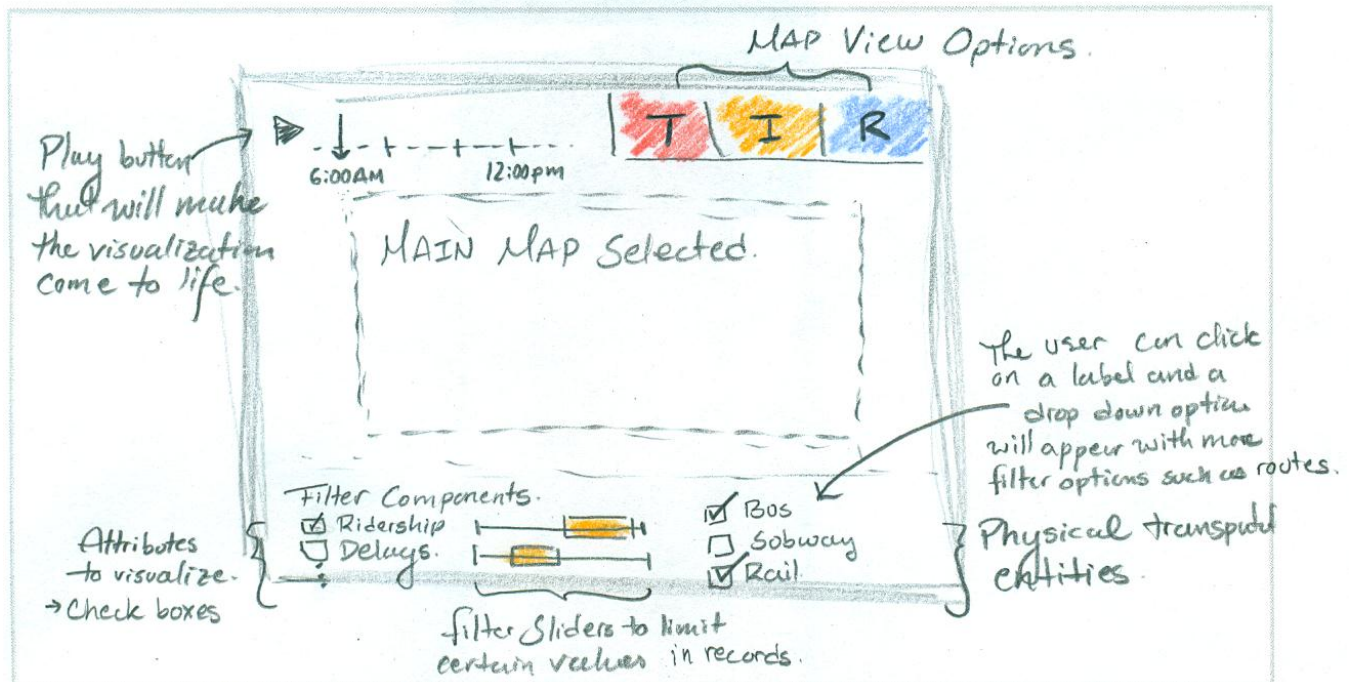 MAP View Options.
Play button
that will make
the visualization
come to life.
6:00AM 12:00pm
T I R
MAIN MAP Selected.
The user can click
on a label and a
drop down option
will appear with more
filter options such as routes.
Filter Components.
Ridership
Delays.
Bus
Subway
Rail
Attributes
to visualize.
→ Check boxes
filter Sliders to limit
certain values in records.
Physical
entities